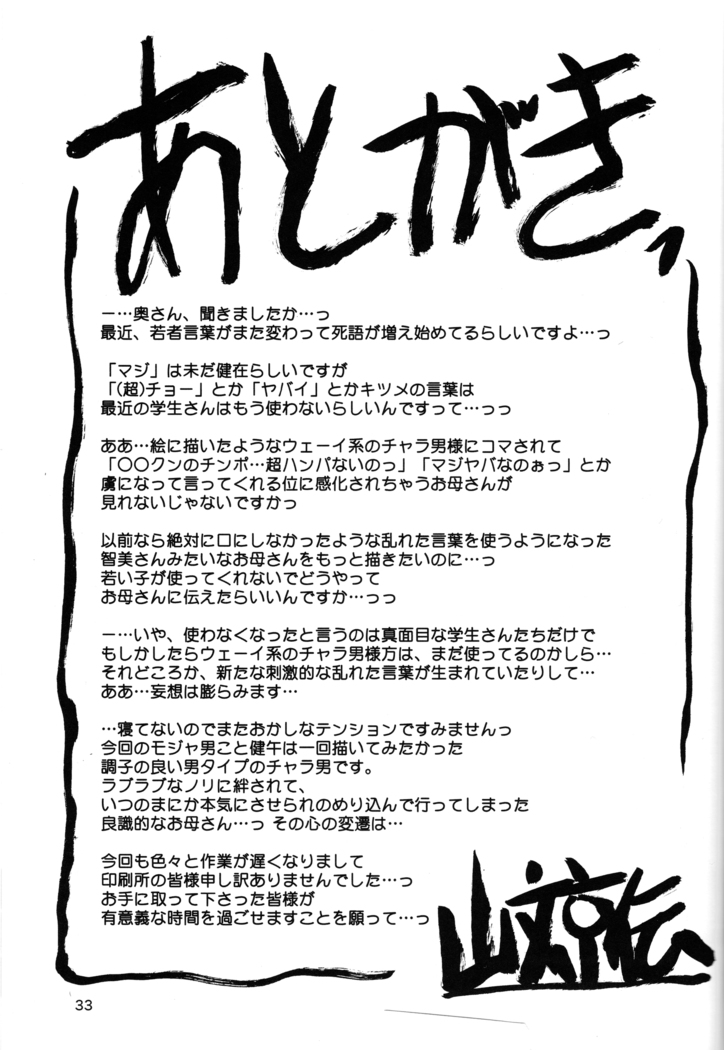 あとがき、
ー…奥さん、聞きましたか…っ
最近、若者言葉がまた変わって死語が増え始めてるらしいですよ…っ
「マジ」は未だ健在らしいですが
「(超)チョー」とか「ヤバイ」とかキツメの言葉は
最近の学生さんはもう使わないらしいんですって…っっ
ああ…絵に描いたようなウェーイ系のチャラ男様にコマされて
「〇〇クンのチンポ…超ハンパないのっ」「マジヤバなのぉっ」とか
虜になって言ってくれる位に感化されちゃうお母さんが
見れないじゃないですかっ
以前なら絶対に口にしなかったような乱れた言葉を使うようになった
智美さんみたいなお母さんをもっと描きたいのに…っ
若い子が使ってくれないでどうやって
お母さんに伝えたらいいんですか…っっ
ー…いや、使わなくなったと言うのは真面目な学生さんたちだけで
もしかしたらウェーイ系のチャラ男様方は、まだ使ってるのかしら…
それどころか、新たな刺激的な乱れた言葉が生まれていたりして…
ああ…妄想は膨らみます…
…寝てないのでまたおかしなテンションですみませんっ
今回のモジャ男こと健午は一回描いてみたかった
調子の良い男タイプのチャラ男です。
ラブラブなノリに絆されて、
いつのまにか本気にさせられのめり込んで行ってしまった
良識的なお母さん…っ その心の変遷は…
今回も色々と作業が遅くなりまして
印刷所の皆様申し訳ありませんでした…っ
お手に取って下さった皆様が
有意義な時間を過ごせますことを願って…っ
山文京伝
33